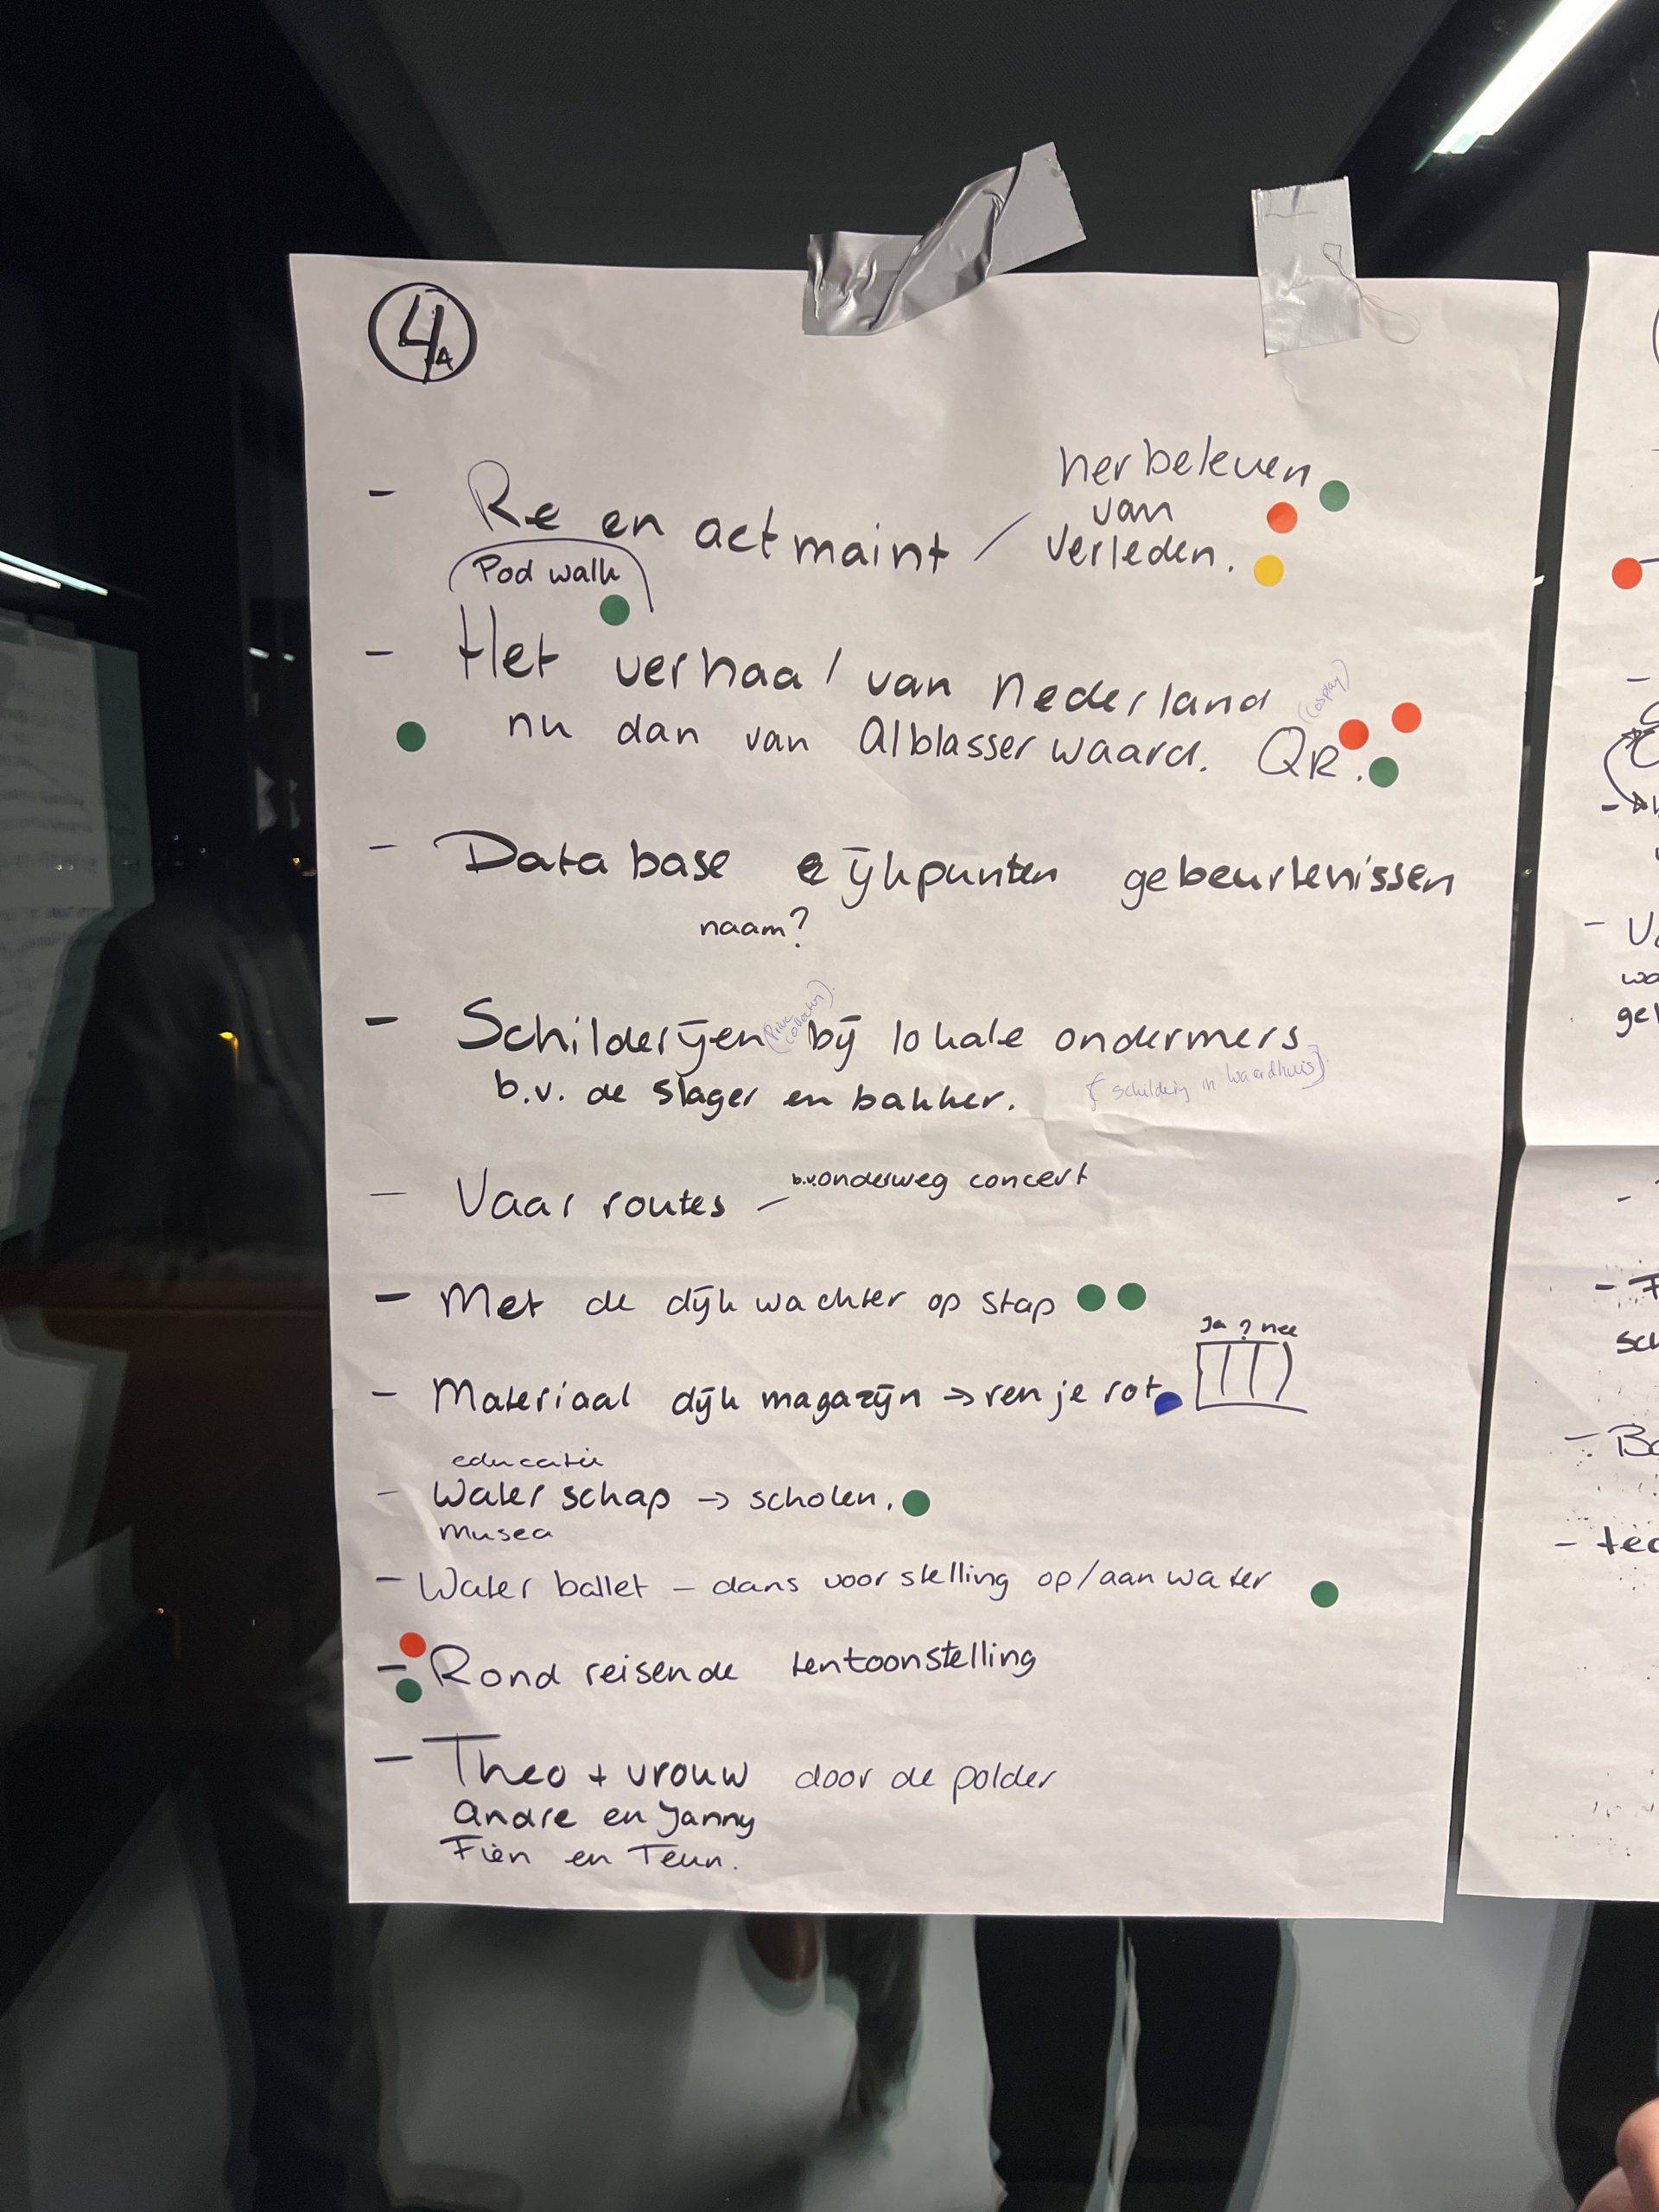 4A
- Re en actmaint / herbeleven
van
verleden.
Pod walk
- Het verhaal van Nederland
(cosplay)
nu dan van Alblasserwaard. QR.
- Data base eijkpunten gebeurtenissen
naam?
- Schilderijen bij lokale ondermers
b.v. de slager en bakker.
(schilderij in Waardhuis)
- Vaar routes - b.v. onderweg concert
- Met de dijkwachter op stap
Ja ? nee
- Materiaal dijk magazijn → ren je rot
educatie
- Waterschap → scholen.
musea
- Water ballet - dans voorstelling op/aan water
- Rond reisende tentoonstelling
- Theo + vrouw door de polder
Andre en Janny
Fien en Teun.